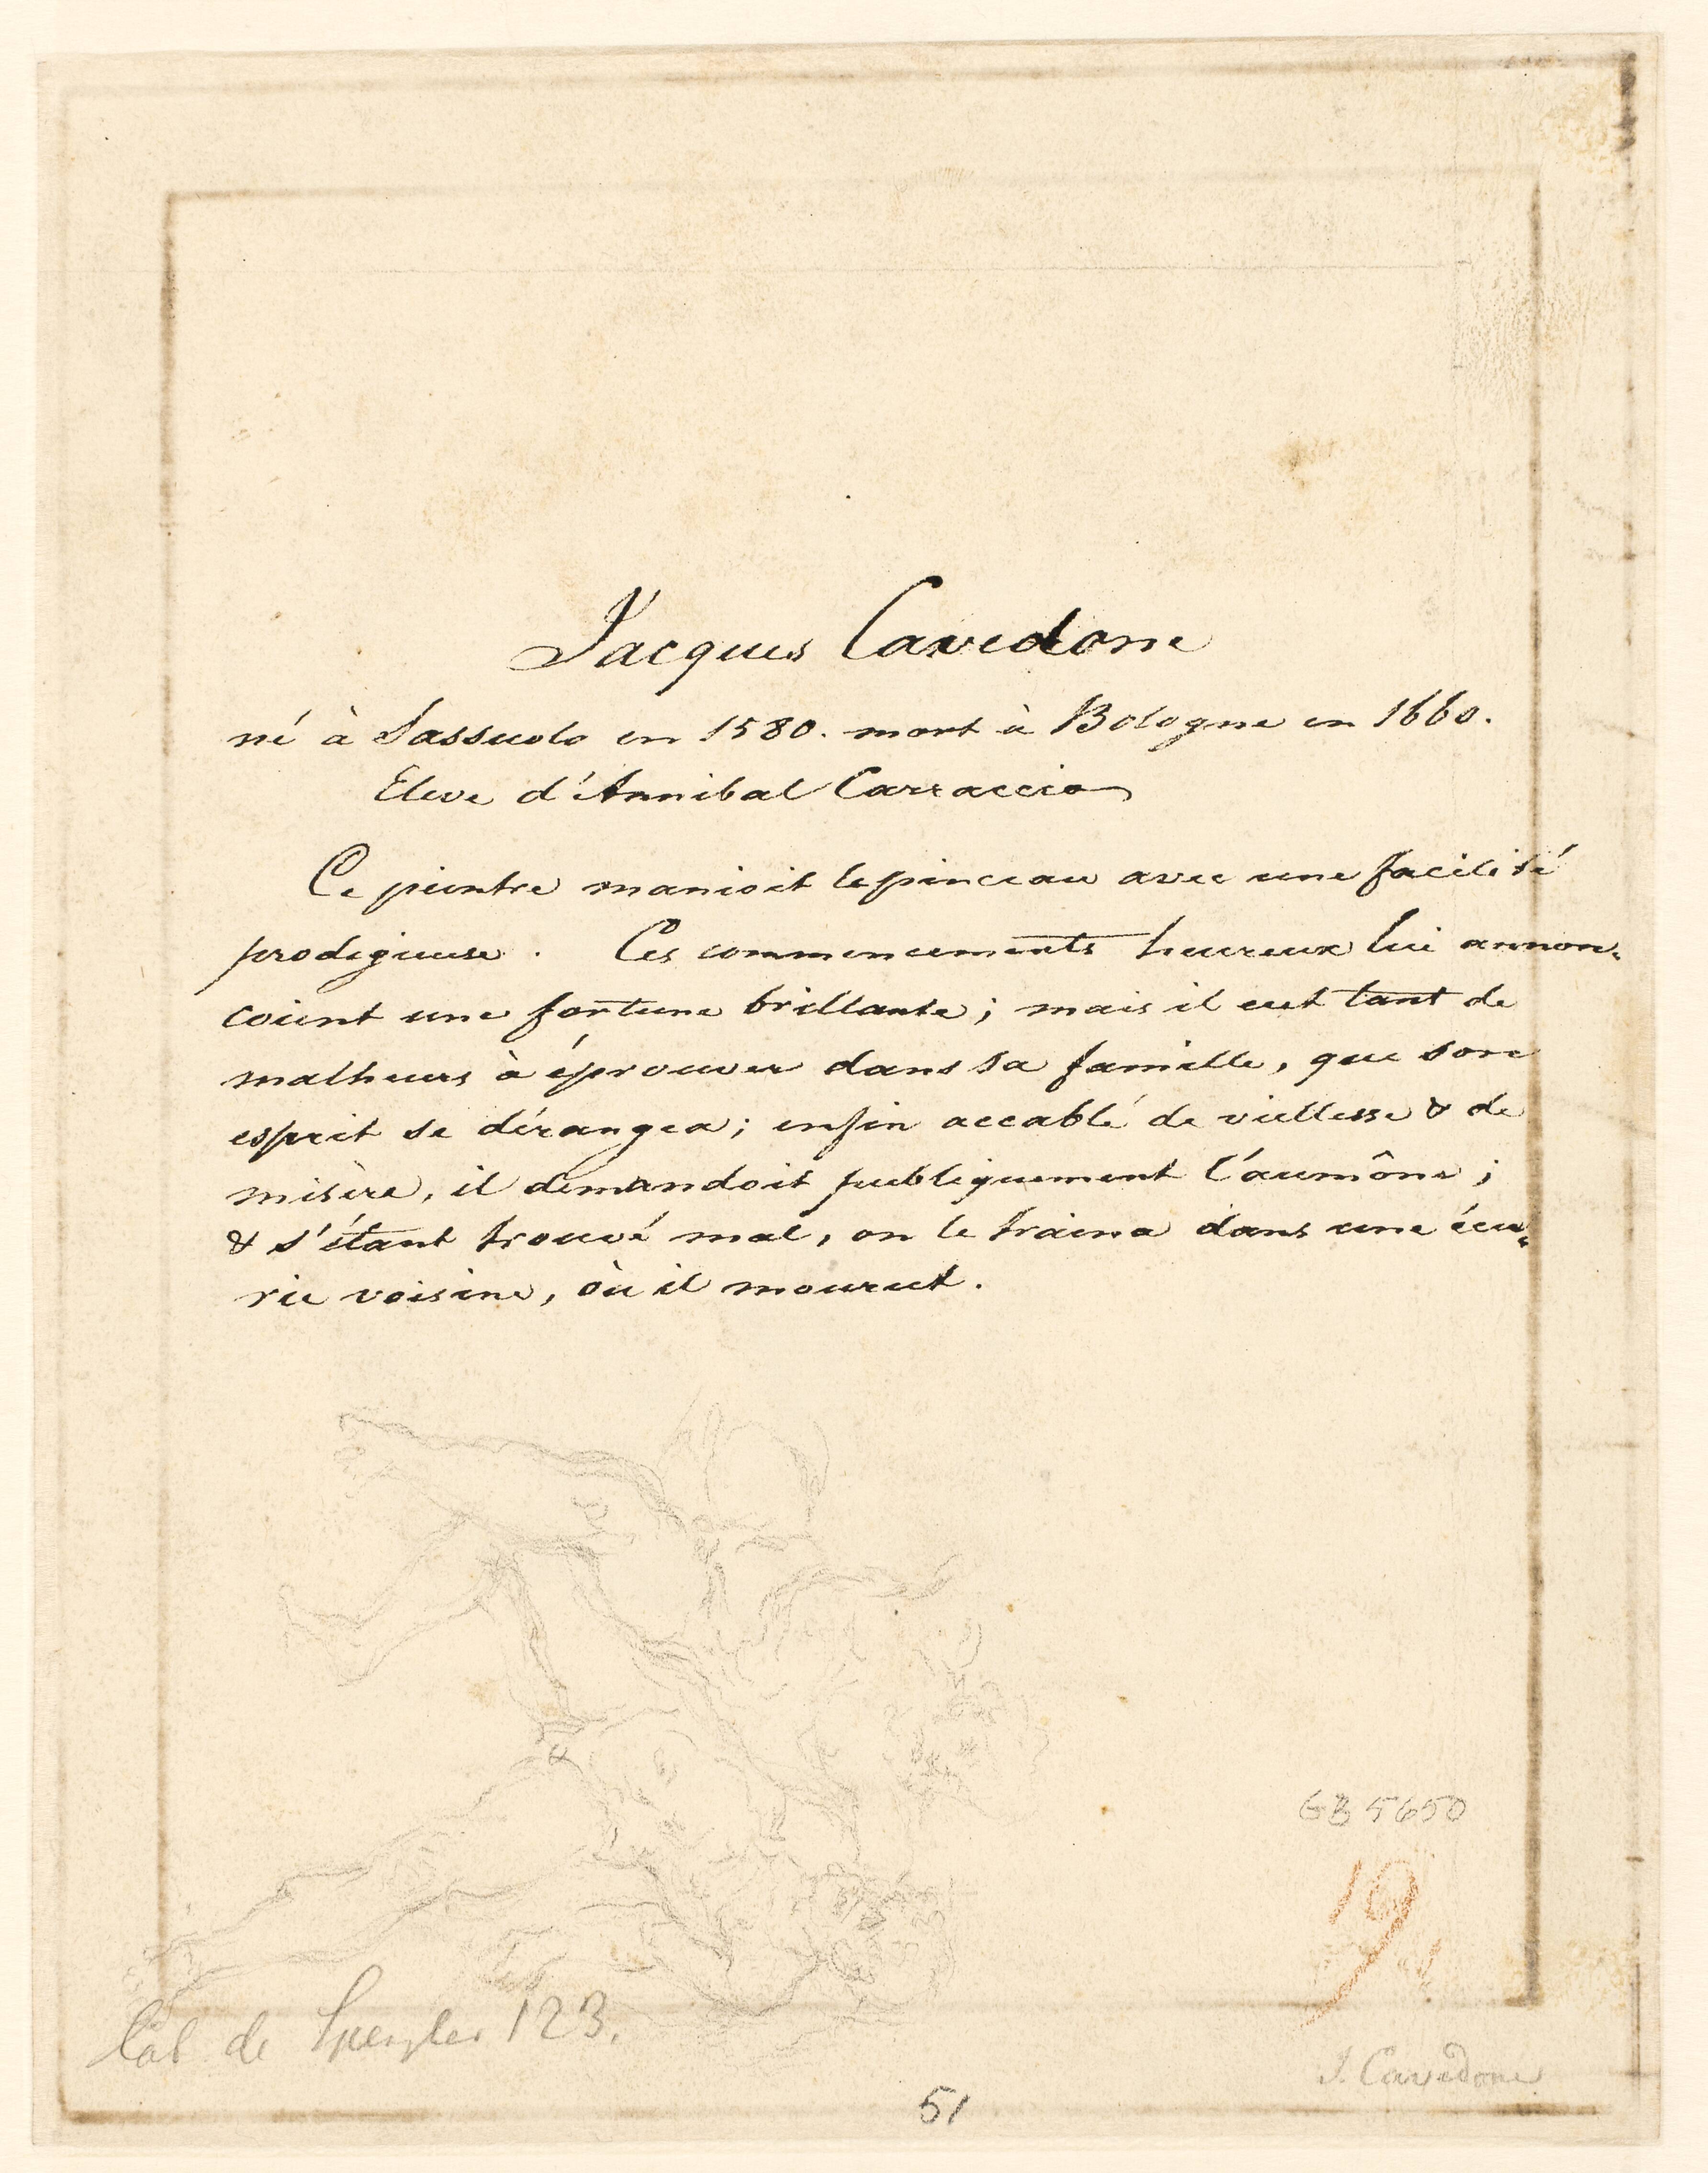 Jacques Cavedone
né à Sassuolo en 1580. mort à Bologne en 1660.
Eleve d'Annibal Carraccio
Ce peintre manioit le pinceau avec une facilité
prodigieuse. Ces commencements heureux lui annon-
coient une fortune brillante; mais il eut tant de
malheurs à éprouver dans sa famille, que son
esprit se dérangea; enfin accablé de viellesse & de
misère, il demandoit publiquement l'aumône;
& s'étant trouvé mal, on le traina dans une écu-
rie voisine, où il mourut.
GB 5650
19
Cab de Spengler 123.
J. Cavedone
51